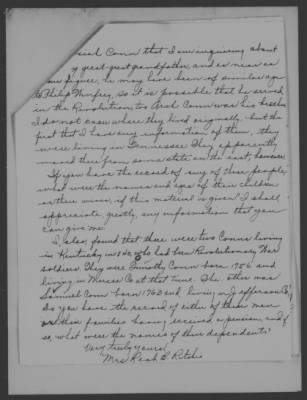 Conn that I am inquiring about
my great-great grandfather, and as near as
figure, he may have been of similar age
to Philip Winfrey, so it is possible that he served
in the Revolution, too. Conn was his
I do not know where they lived originally - but the
first that I have any information of them, they
were living in Tennessee. They apparently
moved there from some state in the east, however.
If you have the record of any of these people,
what were the names and ages of their children
or their wives, if this material is given. I shall
appreciate, greatly, any information that you
can give me.
I, also, found that there were two Conns living
in Kentucky in who had been Revolutionary War
soldiers. They were Timothy Conn born 1756 and
living in Mercer Co at that time. The other was
Samuel Conn born 1763 and living in Jefferson Co.
Do you have the record of either of these men
or their families having received a pension, and if
so, what were the names of their dependents?
Very truly yours,
Mrs Leah B Ritchie